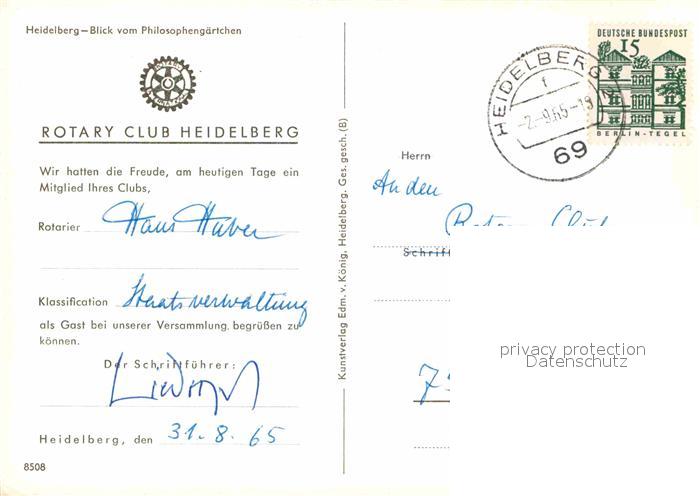 Heidelberg—Blick vom Philosophengärtchen
ROTARY CLUB HEIDELBERG
Wir hatten die Freude, am heutigen Tage ein
Mitglied Ihres Clubs,
Rotarier Hans Huber
Klassification Staatsverwaltung
als Gast bei unserer Versammlung begrüßen zu
können.
Der Schriftführer:
Heidelberg, den 31.8.65
8508
Kunstverlag Edm. v. König, Heidelberg. Ges. gesch. (B)
HEIDELBERG
1
-2.-9.65-19
69
DEUTSCHE BUNDESPOST
15
BERLIN-TEGEL
Herrn
An den
Rotary Club
Schrift
privacy protection
Datenschutz